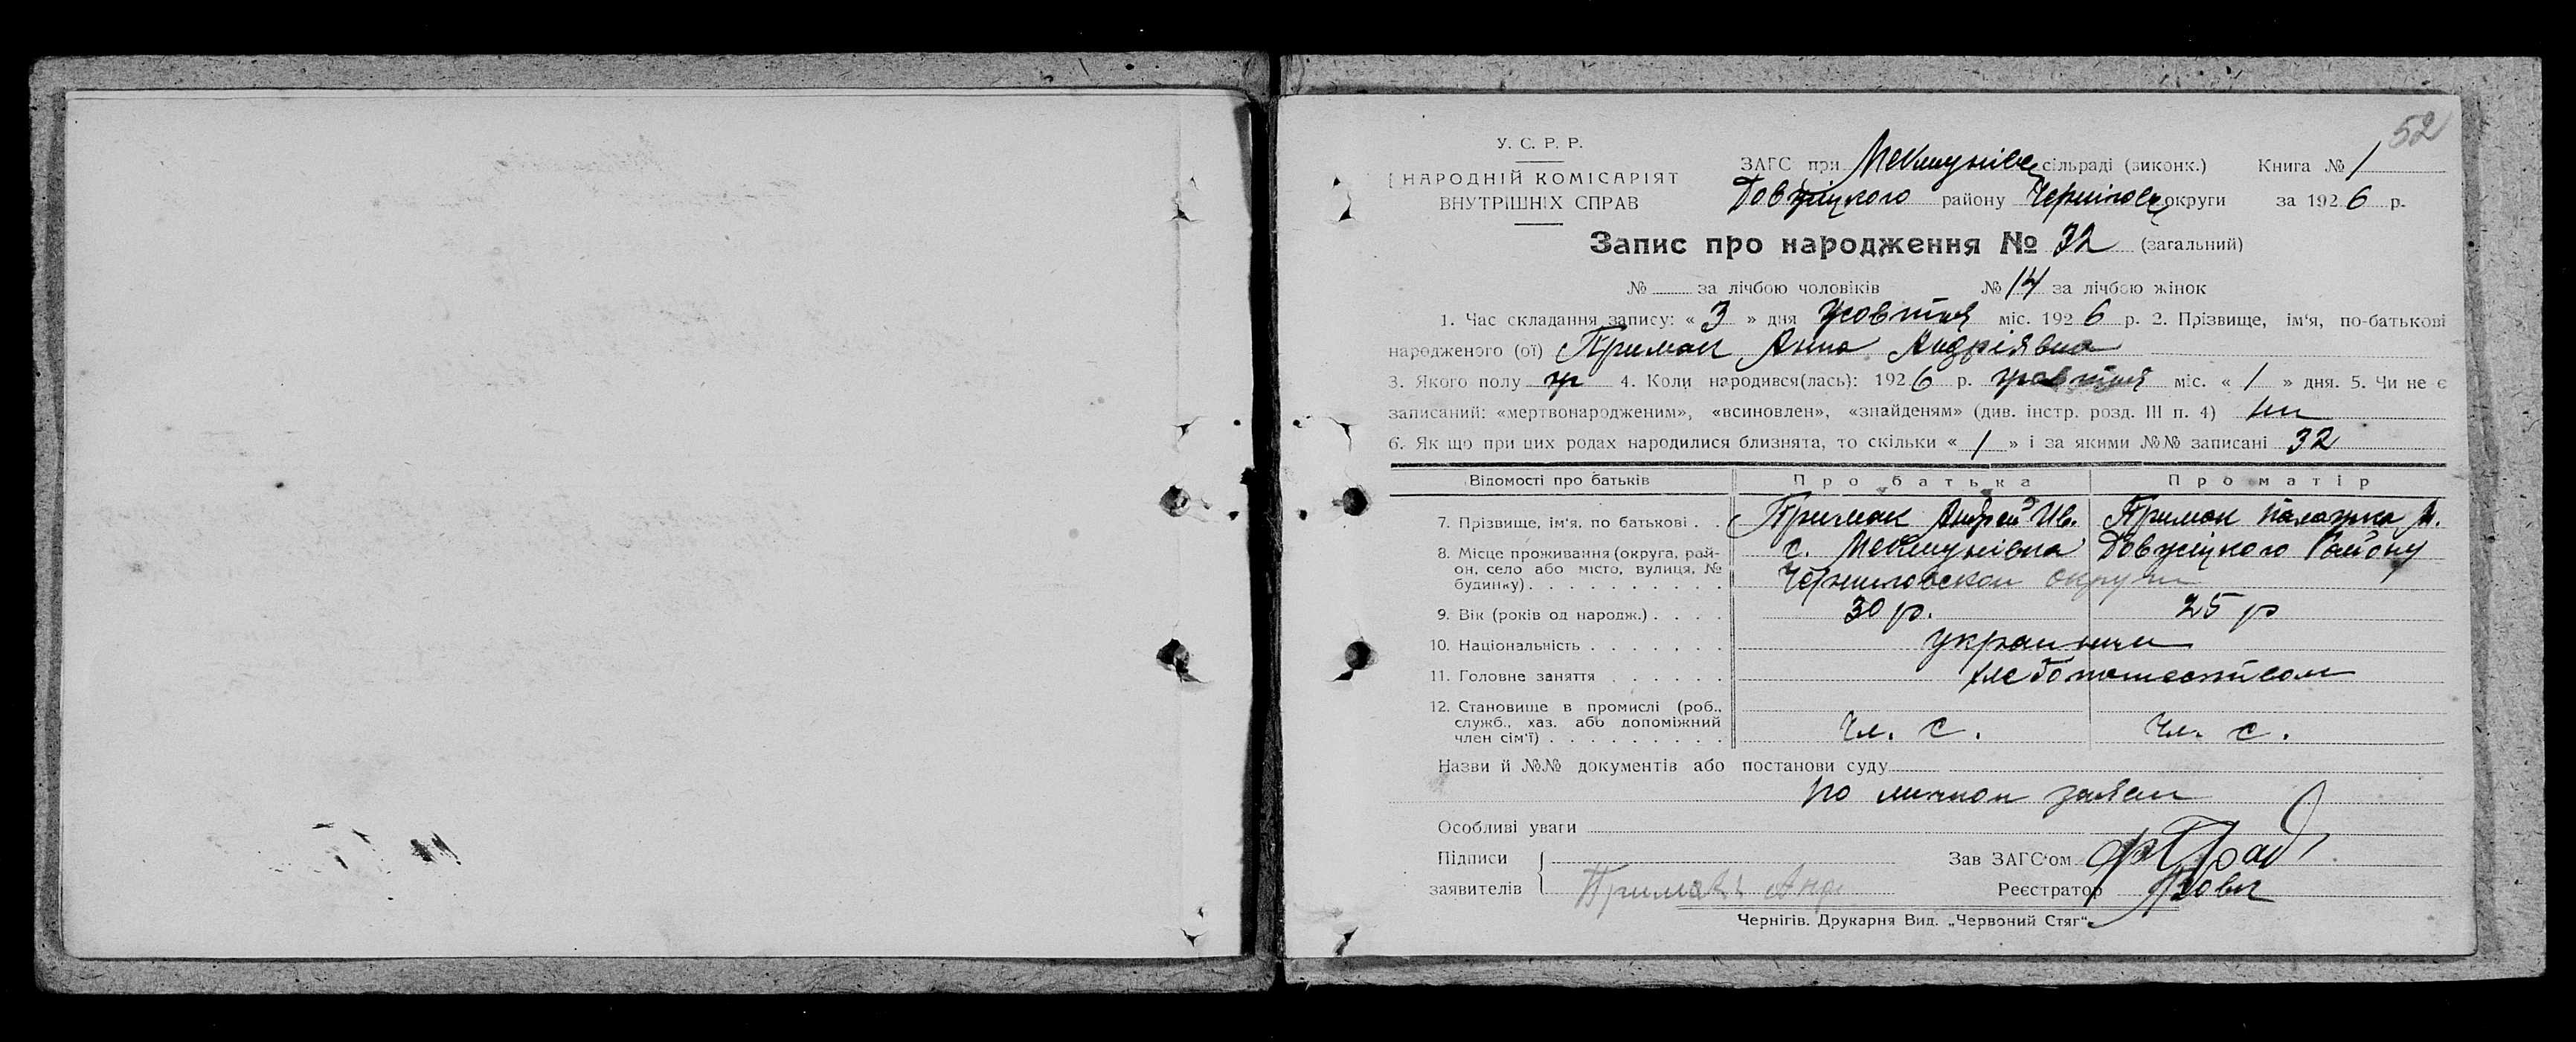 52
У. С. Р. Р.
НАРОДНІЙ КОМІСАРІЯТ
ВНУТРІШНІХ СПРАВ
ЗАГС при сільраді (виконк.) Книга № 1
району округи за 1926 р.
Запис про народження № 32 (загальний)
№ за лічбою чоловіків № 14 за лічбою жінок
1. Час складання запису: « 3 » дня жовтня міс. 1926 р. 2. Прізвище, ім'я, по-батькові
народженого (ої) Примак Анна Андріявна
3. Якого полу ж 4. Коли народився(лась): 1926 р. жовтня міс. « 1 » дня. 5. Чи не є
записаний: «мертвонародженим», «всиновлен», «знайденям» (див. інстр. розд. III п. 4) ни
6. Як що при цих родах народилися близнята, то скільки « 1 » і за якими №№ записані 32
Відомості про батьків Про батька Про матір
7. Прізвище, ім'я, по батькові . . Примак Андрей Ив. Примак Палажка
8. Місце проживання (округа, рай-
он, село або місто, вулиця, №
будинку) . . . . . . . . . .
с. Району
округи
9. Вік (років од народж.) . . . . 30 р. 25 р
10. Національність . . . . . . . украинци
11. Головне заняття . . . . . .
12. Становище в промислі (роб.,
служб., хаз. або допоміжний
член сім'ї) . . . . . . . . . Чл. с. Чл. с.
Назви й №№ документів або постанови суду
по личной заяви
Особливі уваги
Підписи
заявителів Примак Анд
Зав ЗАГС'ом
Реєстратор
Чернігів. Друкарня Вид. „Червоний Стяг".